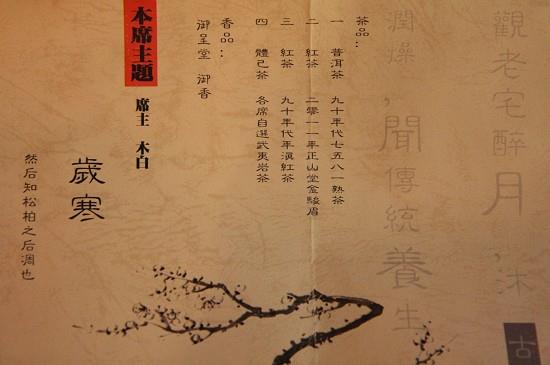 觀老宅醉月,沐
古
潤燥,聞傳統養生
茶品:
一 普洱茶 九十年代七五八一熟茶
二 紅茶 二零一一年正山堂金駿眉
三 紅茶 九十年代年滇紅茶
四 體己茶 各席自選武夷岩茶
香品:
御呈堂 御香
本席主題
席主 木白
歲寒
然后知松柏之后凋也